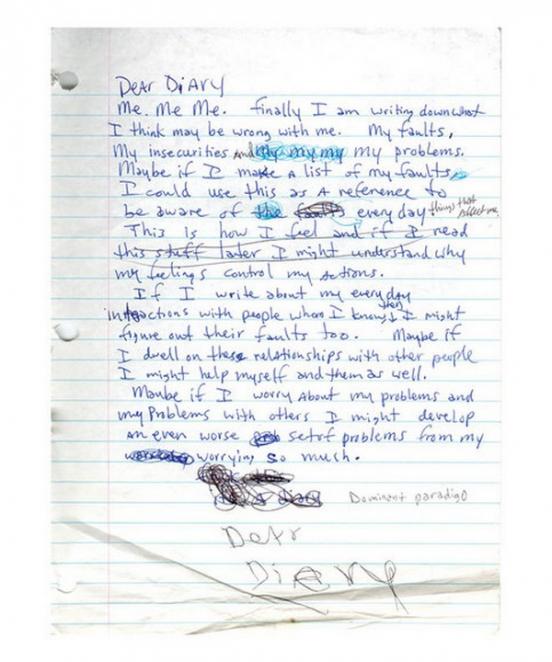 Dear Diary
Me. Me Me. finally I am writing down what
I think may be wrong with me. My faults,
My insecurities and my my my problems.
Maybe if I make a list of my faults
I could use this as a reference to
be aware of the faults every day things that affect me.
This is how I feel and if I read
this stuff later I might understand why
my feelings control my actions.
If I write about my everyday
interactions with people whom I know, then I might
figure out their faults too. Maybe if
I dwell on these relationships with other people
I might help myself and them as well.
Maybe if I worry About my problems and
my Problems with others I might develop
an even worse set of problems from my
worrying so much.
a diary Dominant paradigo
Dear
Diary